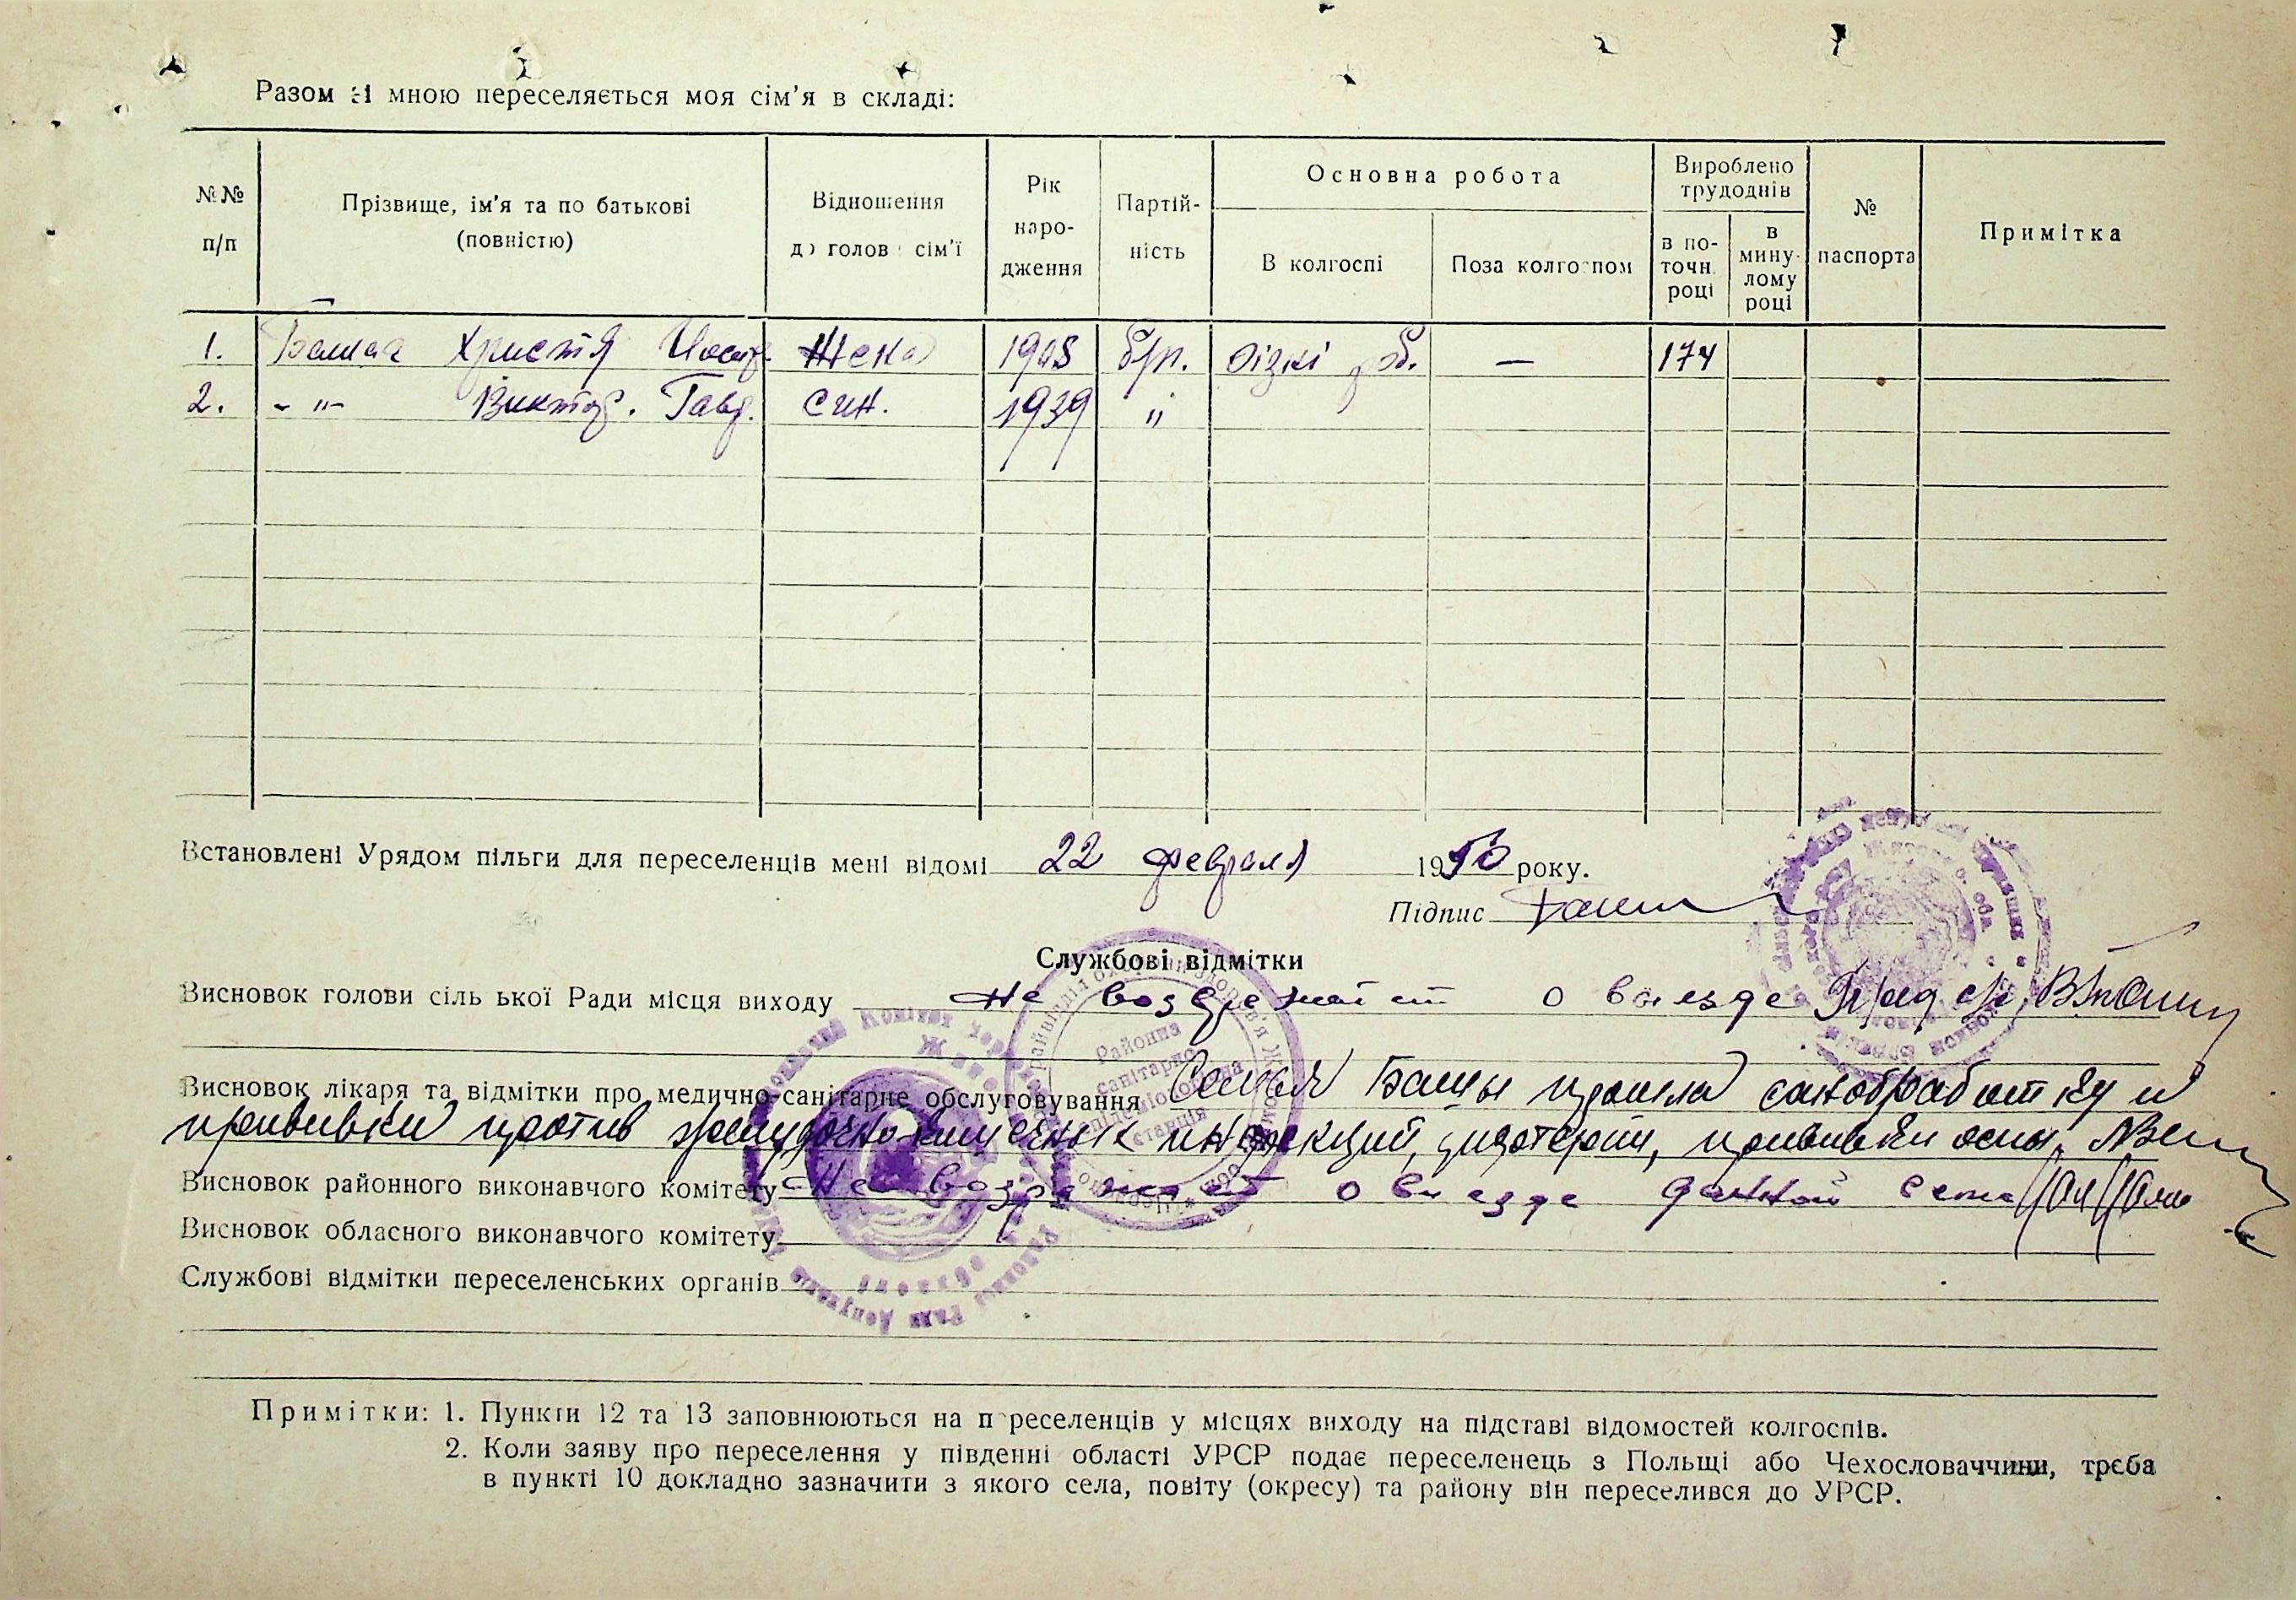 Разом зі мною переселяється моя сім'я в складі:
№№ п/п
Прізвище, ім'я та по батькові (повністю)
Відношення до голови сім'ї
Рік народження
Партійність
Основна робота
В колгоспі
Поза колгоспом
Вироблено трудоднів
в поточн. році
в минулому році
№ паспорта
Примітка
1. Христя Иосиф. Жена 1908 б/п. різні роб. — 174
2. - " - Виктор. Гавр. син. 1939 "
Встановлені Урядом пільги для переселенців мені відомі 22 февраля 1950 року.
Підпис
Службові відмітки
Висновок голови сільської Ради місця виходу не возражает о выезде Пред с/р
Висновок лікаря та відмітки про медично-санітарне обслуговування Семья Бацы прошла санобработку и
прививки против желудочно-кишечных инфекций, дизотерии, прививки оспы.
Висновок районного виконавчого комітету Не возражает о выезде данной семьи
Висновок обласного виконавчого комітету
Службові відмітки переселенських органів
Районна
санітарно
епідеміологічна
станція
Примітки: 1. Пункти 12 та 13 заповнюються на переселенців у місцях виходу на підставі відомостей колгоспів.
2. Коли заяву про переселення у південні області УРСР подає переселенець з Польщі або Чехословаччини, треба
в пункті 10 докладно зазначити з якого села, повіту (окресу) та району він переселився до УРСР.